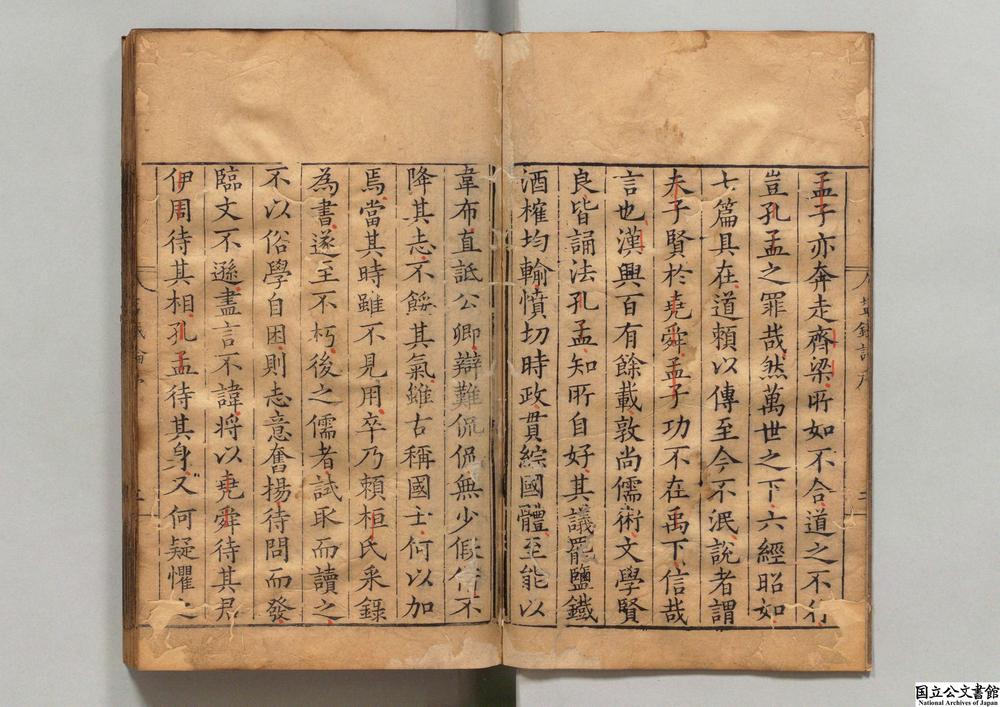 孟子亦奔走齊梁所如不合道之不行
豈孔孟之罪哉然萬世之下六經昭如
七篇具在道賴以傳至今不泯說者謂
夫子賢於堯舜孟子功不在禹下信哉
言也漢興百有餘載敦尚儒術文學賢
良皆誦法孔孟知所自好其議罷鹽鐵
酒榷均輸憤切時政貫綜國體至能以
韋布直詆公卿辯難侃侃無少假借不
降其志不餒其氣雖古稱國士何以加
焉當其時雖不見用卒乃賴桓氏采錄
為書遂至不朽後之儒者試取而讀之
不以俗學自困則志意奮揚待問而發
臨文不遜盡言不諱將以堯舜待其君
伊周待其相孔孟待其身又何疑懼之
国立公文書館
National Archives of Japan